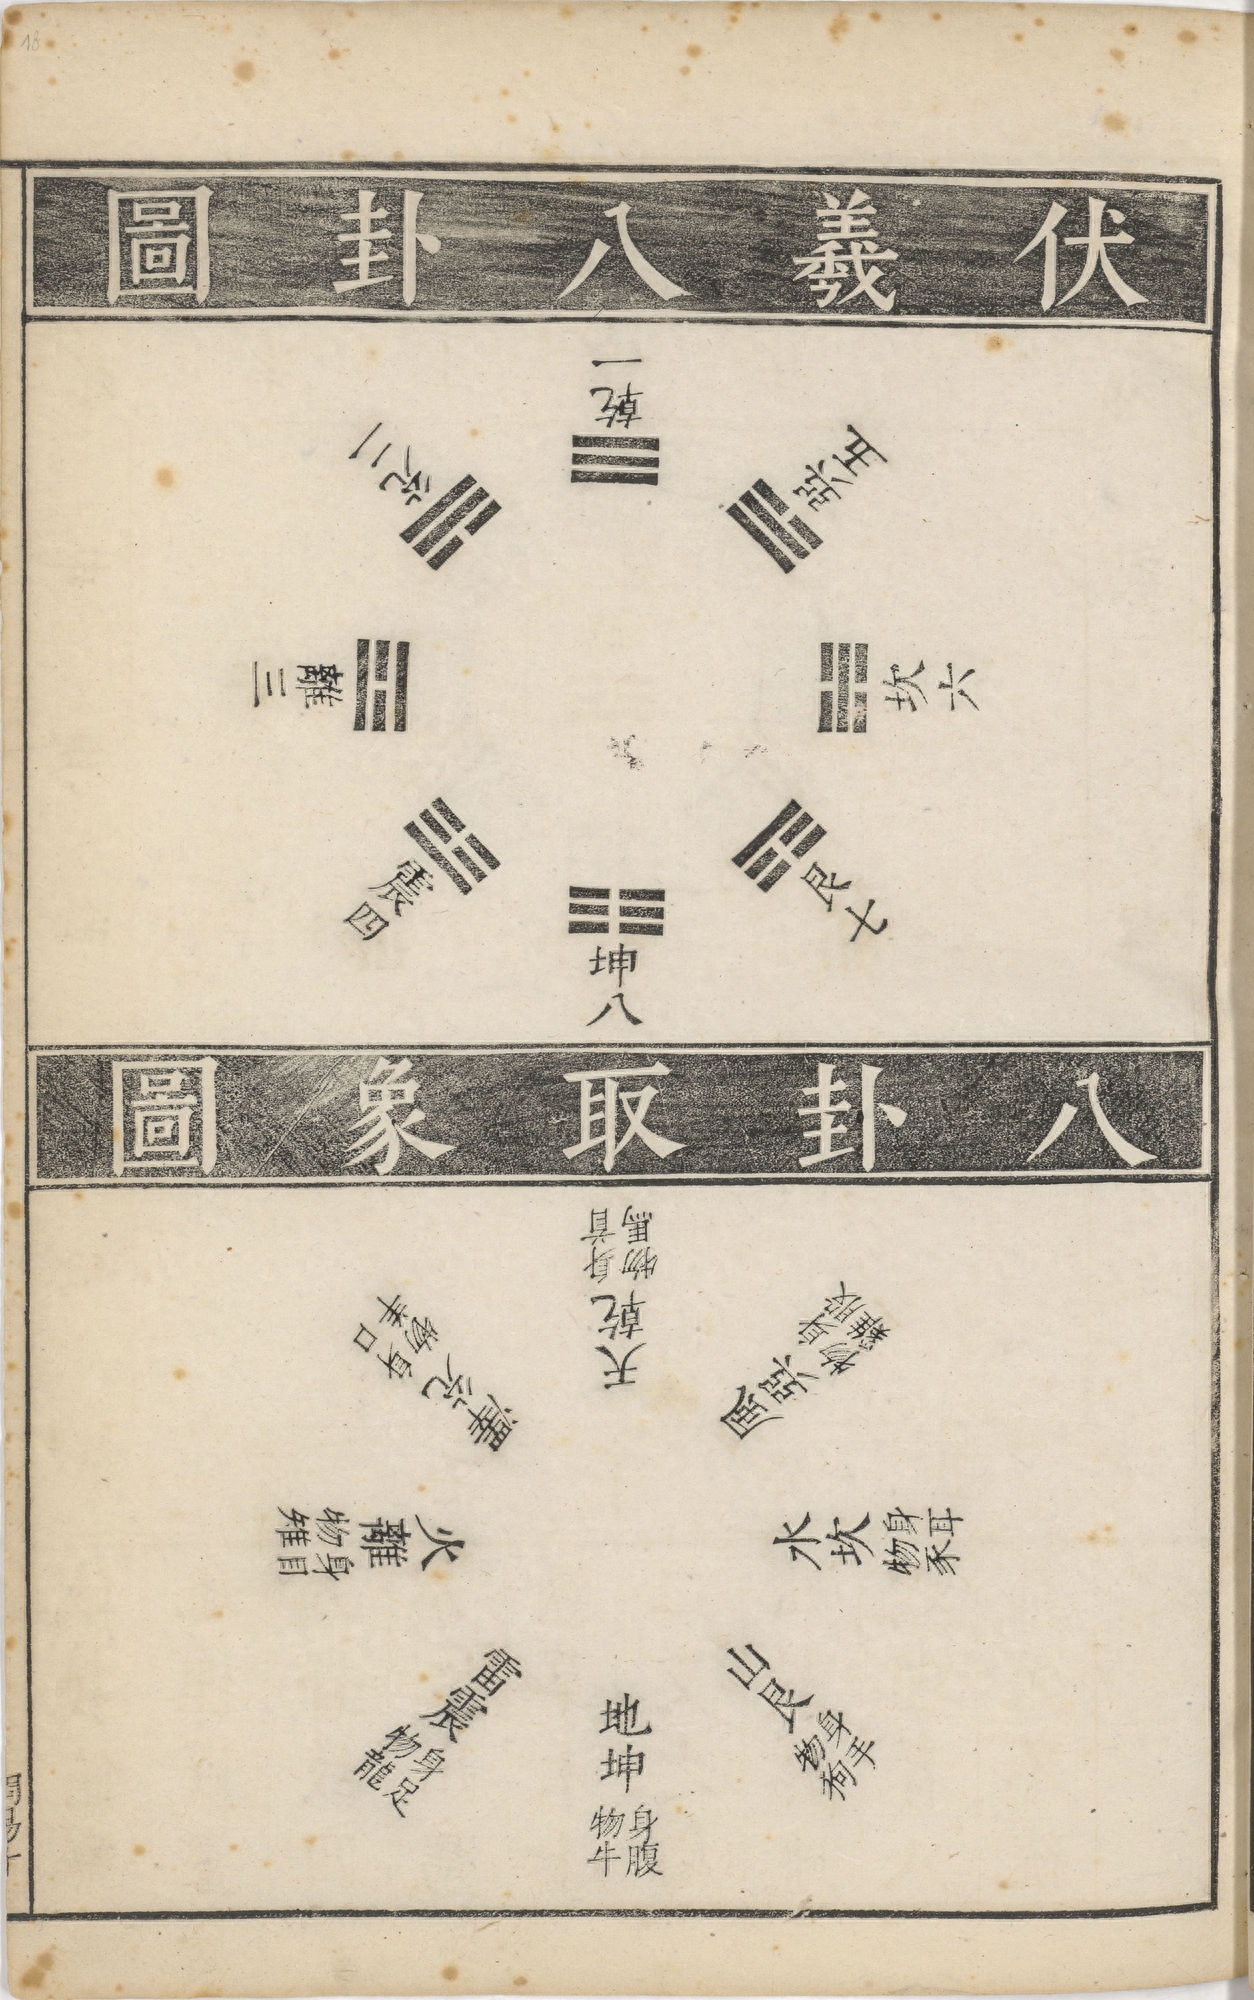 伏羲八卦圖
乾一
兌二
離三
震四
巽五
坎六
艮七
坤八
八卦取象圖
天乾身首物馬
澤兌身口物羊
火離身目物雉
雷震身足物龍
風巽身股物雞
水坎身耳物豕
山艮身手物狗
地坤身腹物牛
18